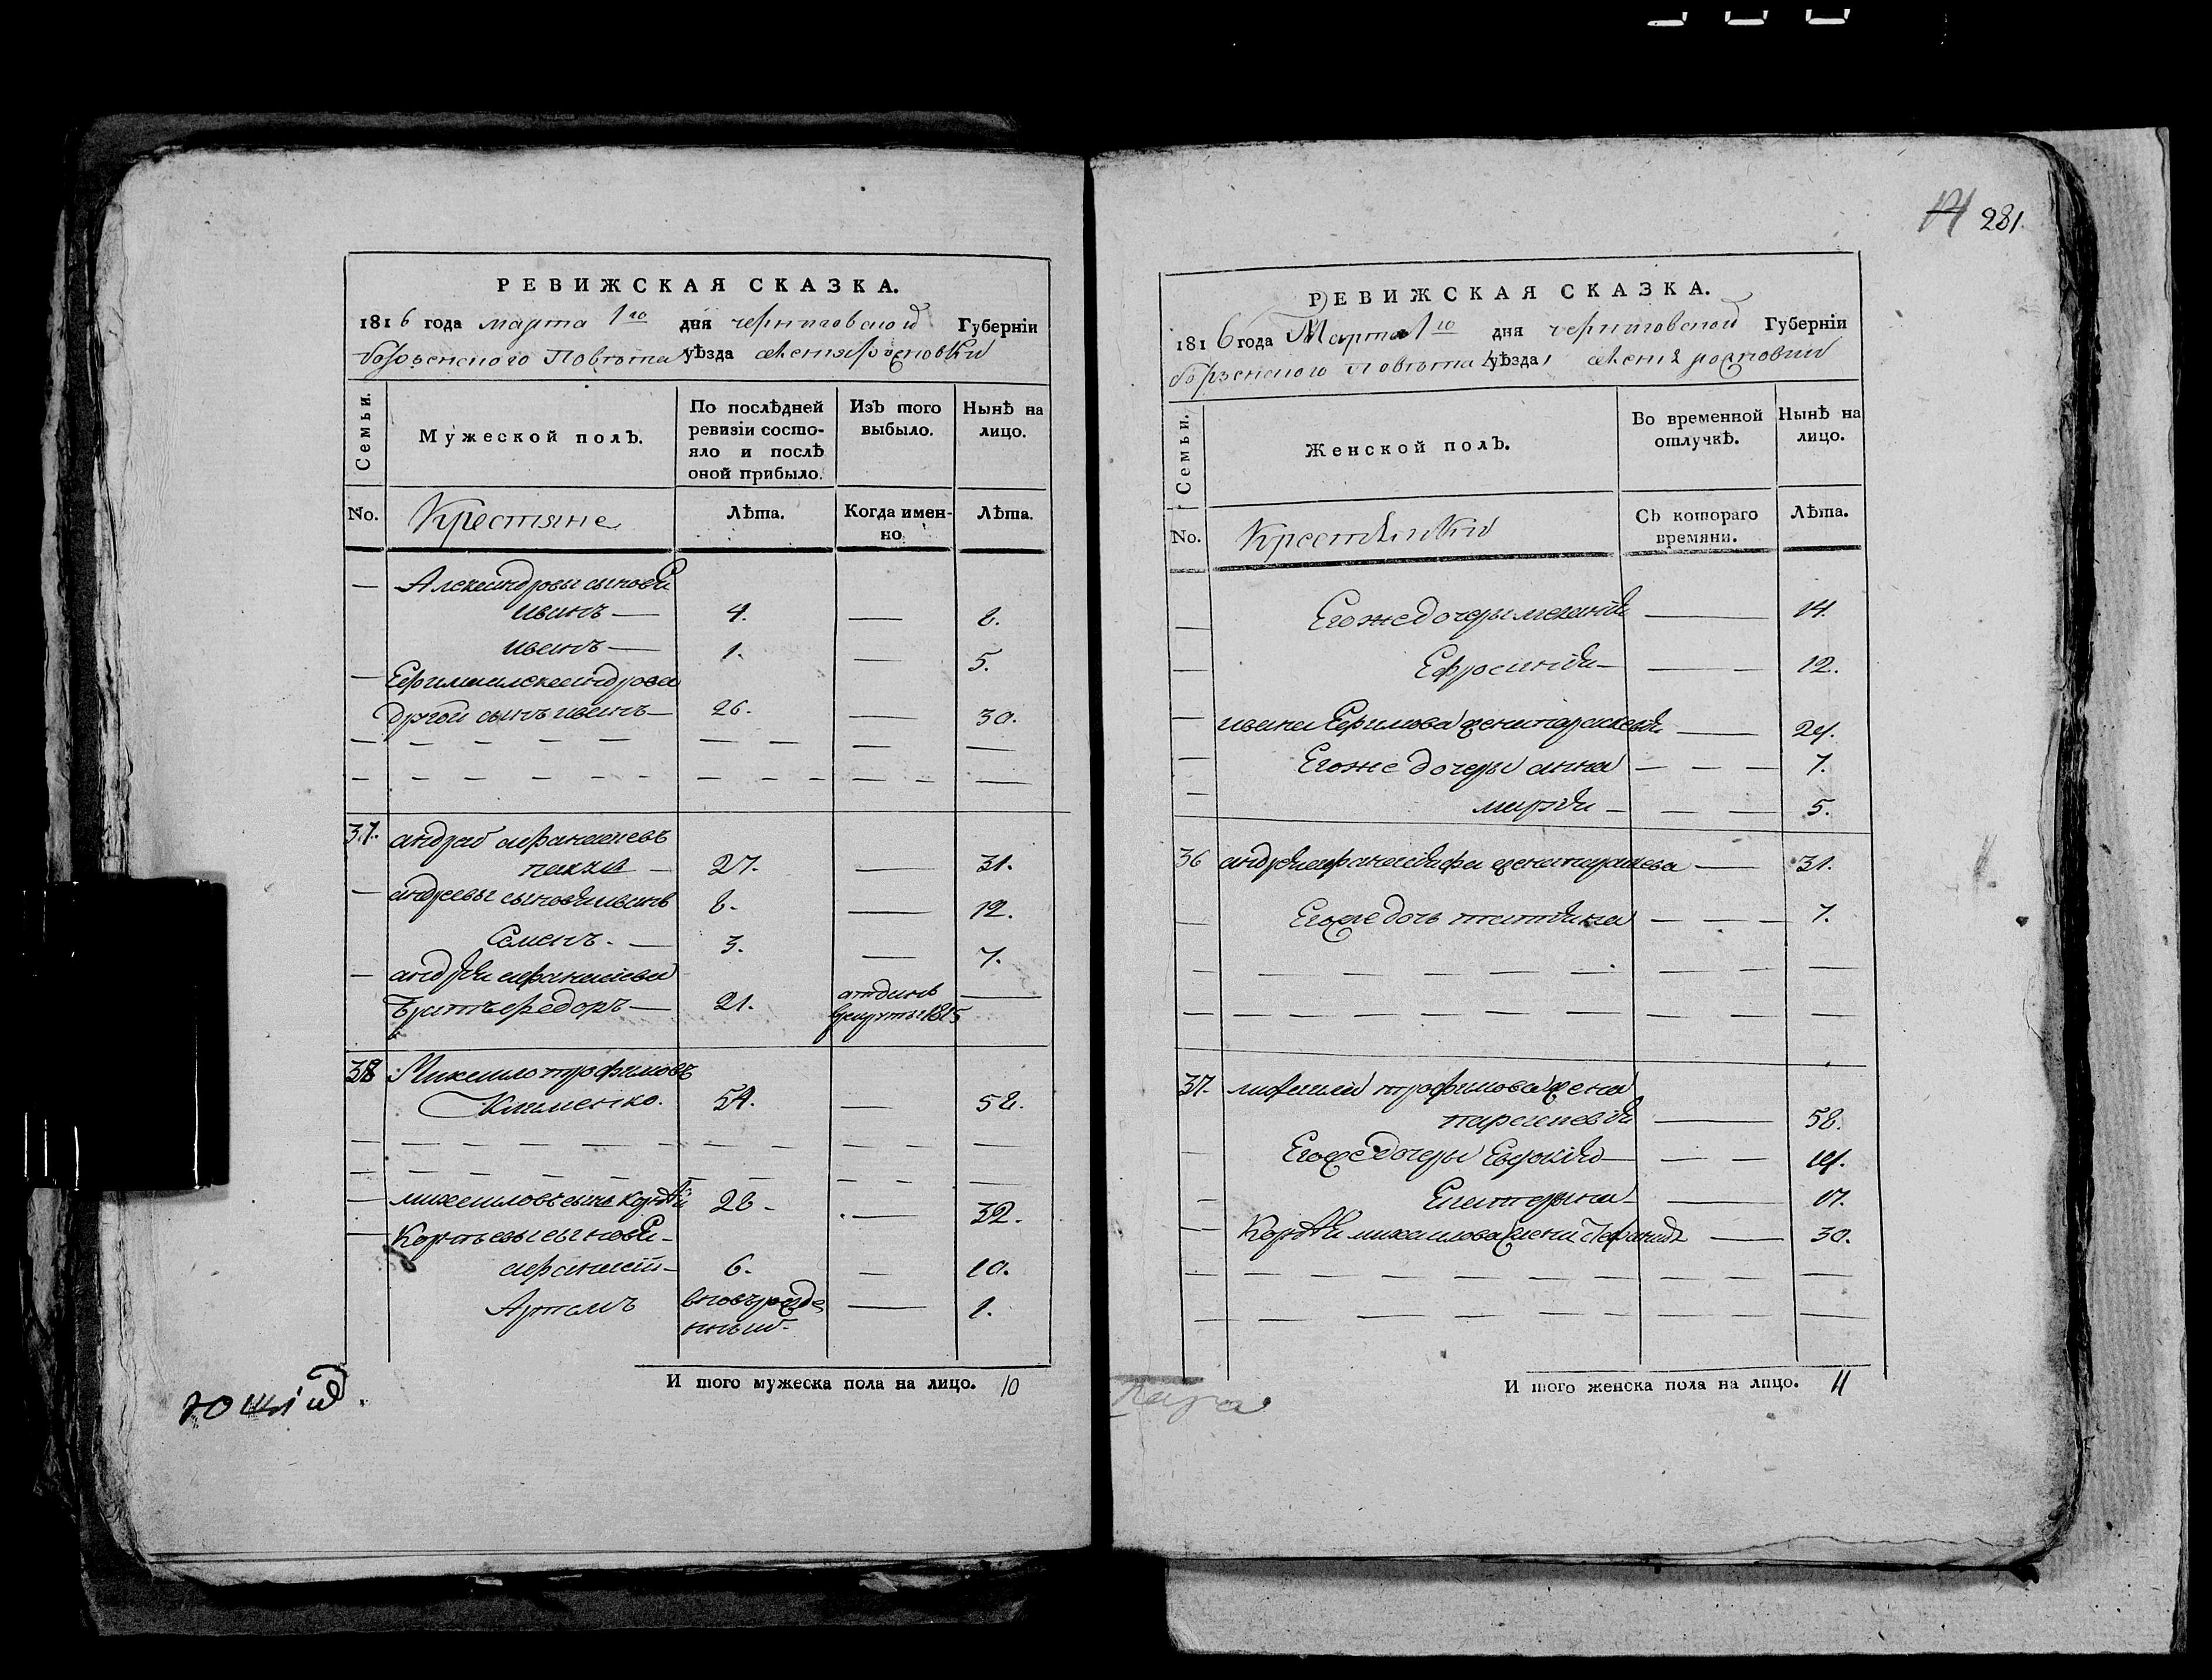 РЕВИЖСКАЯ СКАЗКА.
1816 года марта 1го дня черниговской Губерніи
борзенского Повѣта уѣзда
Семьи.
Мужеской полъ.
По послѣдней ревизіи состояло и послѣ оной прибыло.
Изъ того выбыло.
Нынѣ на лицо.
No.
Крестяне
Лѣта.
Когда именно.
Лѣта.
— Александровы сыновя
иванъ — 4. — 8.
иванъ — 1. — 5.
— Ефима александрова
другой сынъ иванъ — 26. — 30.
37. андрей афанасиевъ
27. — 31.
— андреевы сыновя иванъ 8. — 12.
Семенъ. — 3. — 7.
— андрея афанасиева
братъ федоръ — 21. отданъ —
врекруты 1815
38 Михаило трофимовъ
Клименко. 54. — 58.
— михаиловъ сынъ корнѣй 28. — 32.
— Корнѣевы сыновя —
афанасій — 6. — 10.
Артемъ вновърожде — 1.
нный.
И того мужеска пола на лицо. 10
281.
РЕВИЖСКАЯ СКАЗКА.
1816 года Марта 1го дня черниговской Губерніи
борзенского повѣта уѣзда
Семьи.
Женской полъ.
Во временной отлучкѣ.
Нынѣ на лицо.
No.
Крестянки
Съ котораго времяни.
Лѣта.
— Егоже дочеры меланія — 14.
— Ефросинія — 12.
— ивана Ефимова жена параскевія — 24.
— Егоже дочеры анна — 7.
— марія — 5.
36 андрея афанасіева жена — 31.
— Егоже дочь татіяна — 7.
37. михаила трофимова жена
параскевія — 58.
— Егоже дочеры Евдокія — 19.
— Екатерина — 17.
— Корнѣя михаилова жена Стефанида — 30.
И того женска пола на лицо. 11